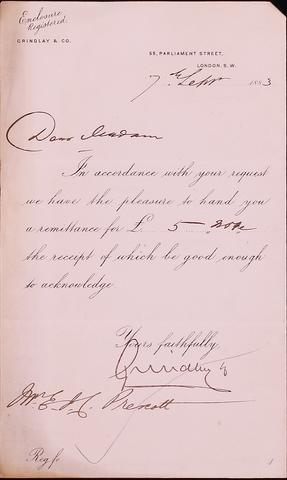 Enclosure
Registered.
GRINDLAY & CO.
55, PARLIAMENT STREET,
LONDON, S.W.
7th Septr 1883
Dear Madam
In accordance with your request
we have the pleasure to hand you
a remittance for £ 5 note
the receipt of which be good enough
to acknowledge.
Yours faithfully,
Grindlay &
Prescott
Reg. fo.